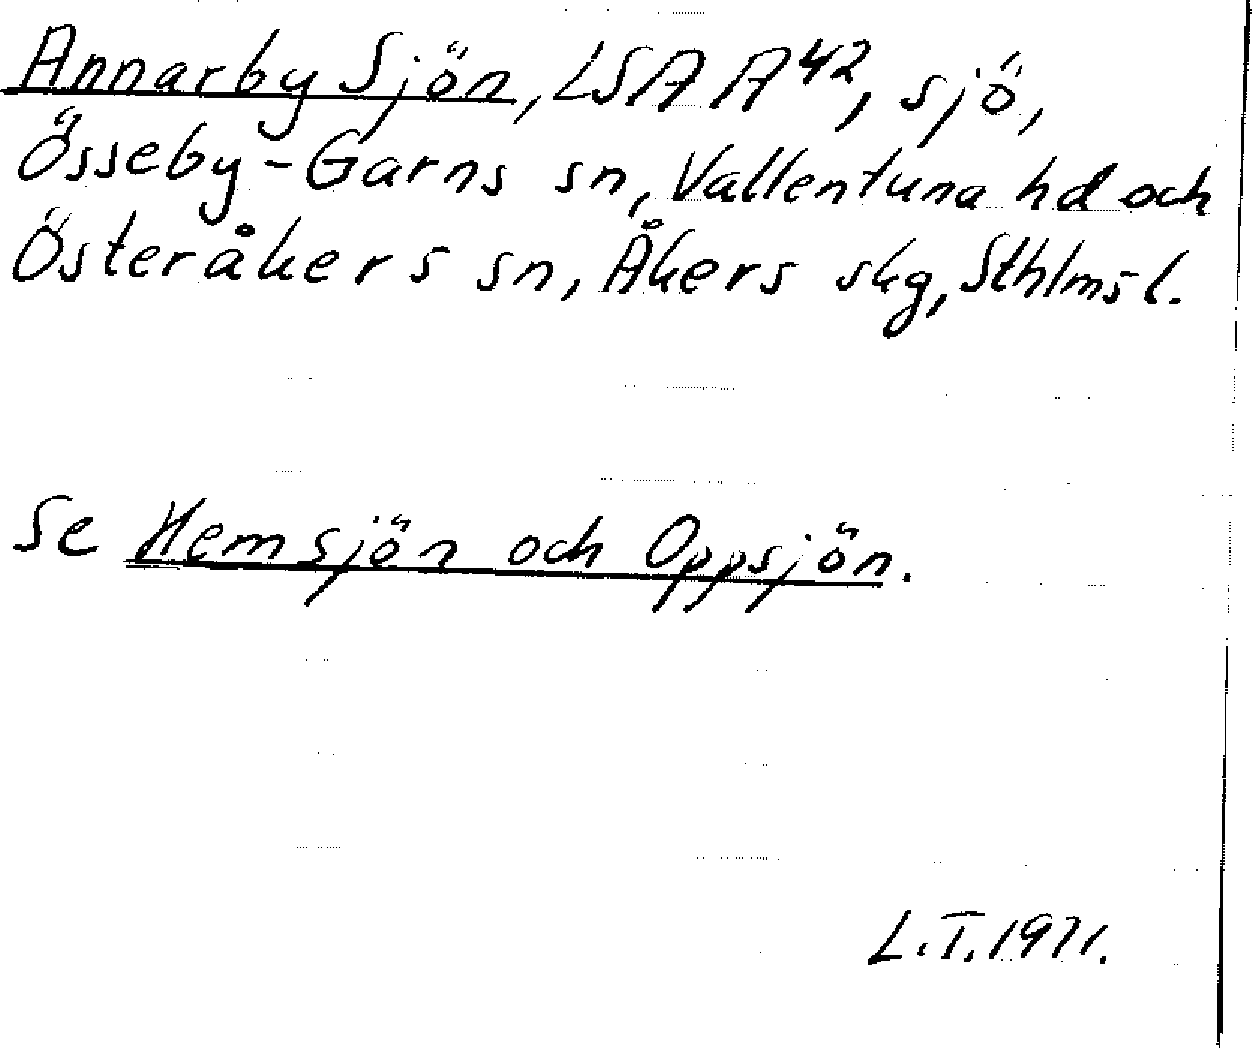 Annarby Sjön, LSA A⁴², sjö,
Össeby-Garns sn, Vallentuna hd och
Österåkers sn, Åkers skg, Sthlms l.
Se Hemsjön och Oppsjön.
L.T. 1971.